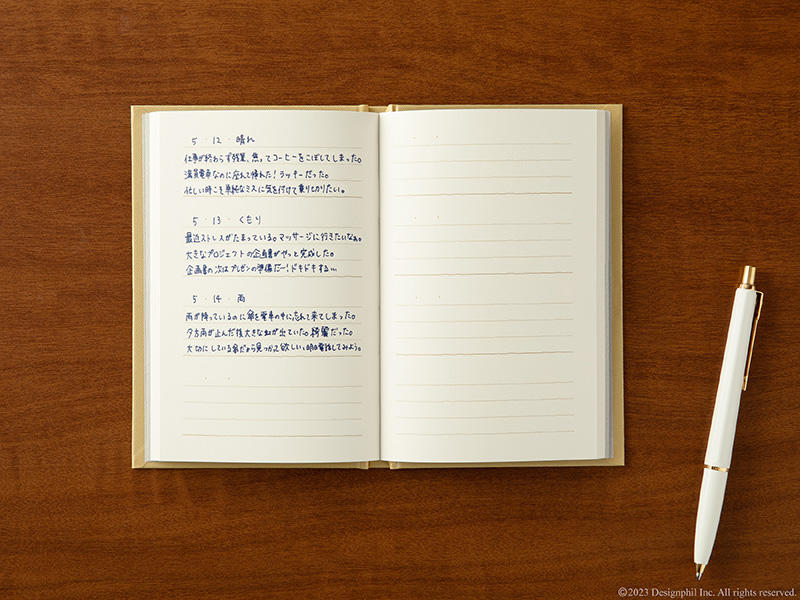 5・12・晴れ
仕事が終わらず残業、焦ってコーヒーをこぼしてしまった。
満員電車なのに座れて帰れた!ラッキーだった。
忙しい時こそ単純なミスに気を付けて乗り切りたい。
5・13・くもり
最近ストレスがたまっている。マッサージに行きたいなぁ。
大きなプロジェクトの企画書がやっと完成した。
企画書の次はプレゼンの準備だー!ドキドキする…
5・14・雨
雨が降っているのに傘を電車の中に忘れて来てしまった。
夕方雨が止んだ後大きな虹が出ていた。綺麗だった。
大切にしている傘だから見つかって欲しい、明日電話してみよう。
©2023 Designphil Inc. All rights reserved.